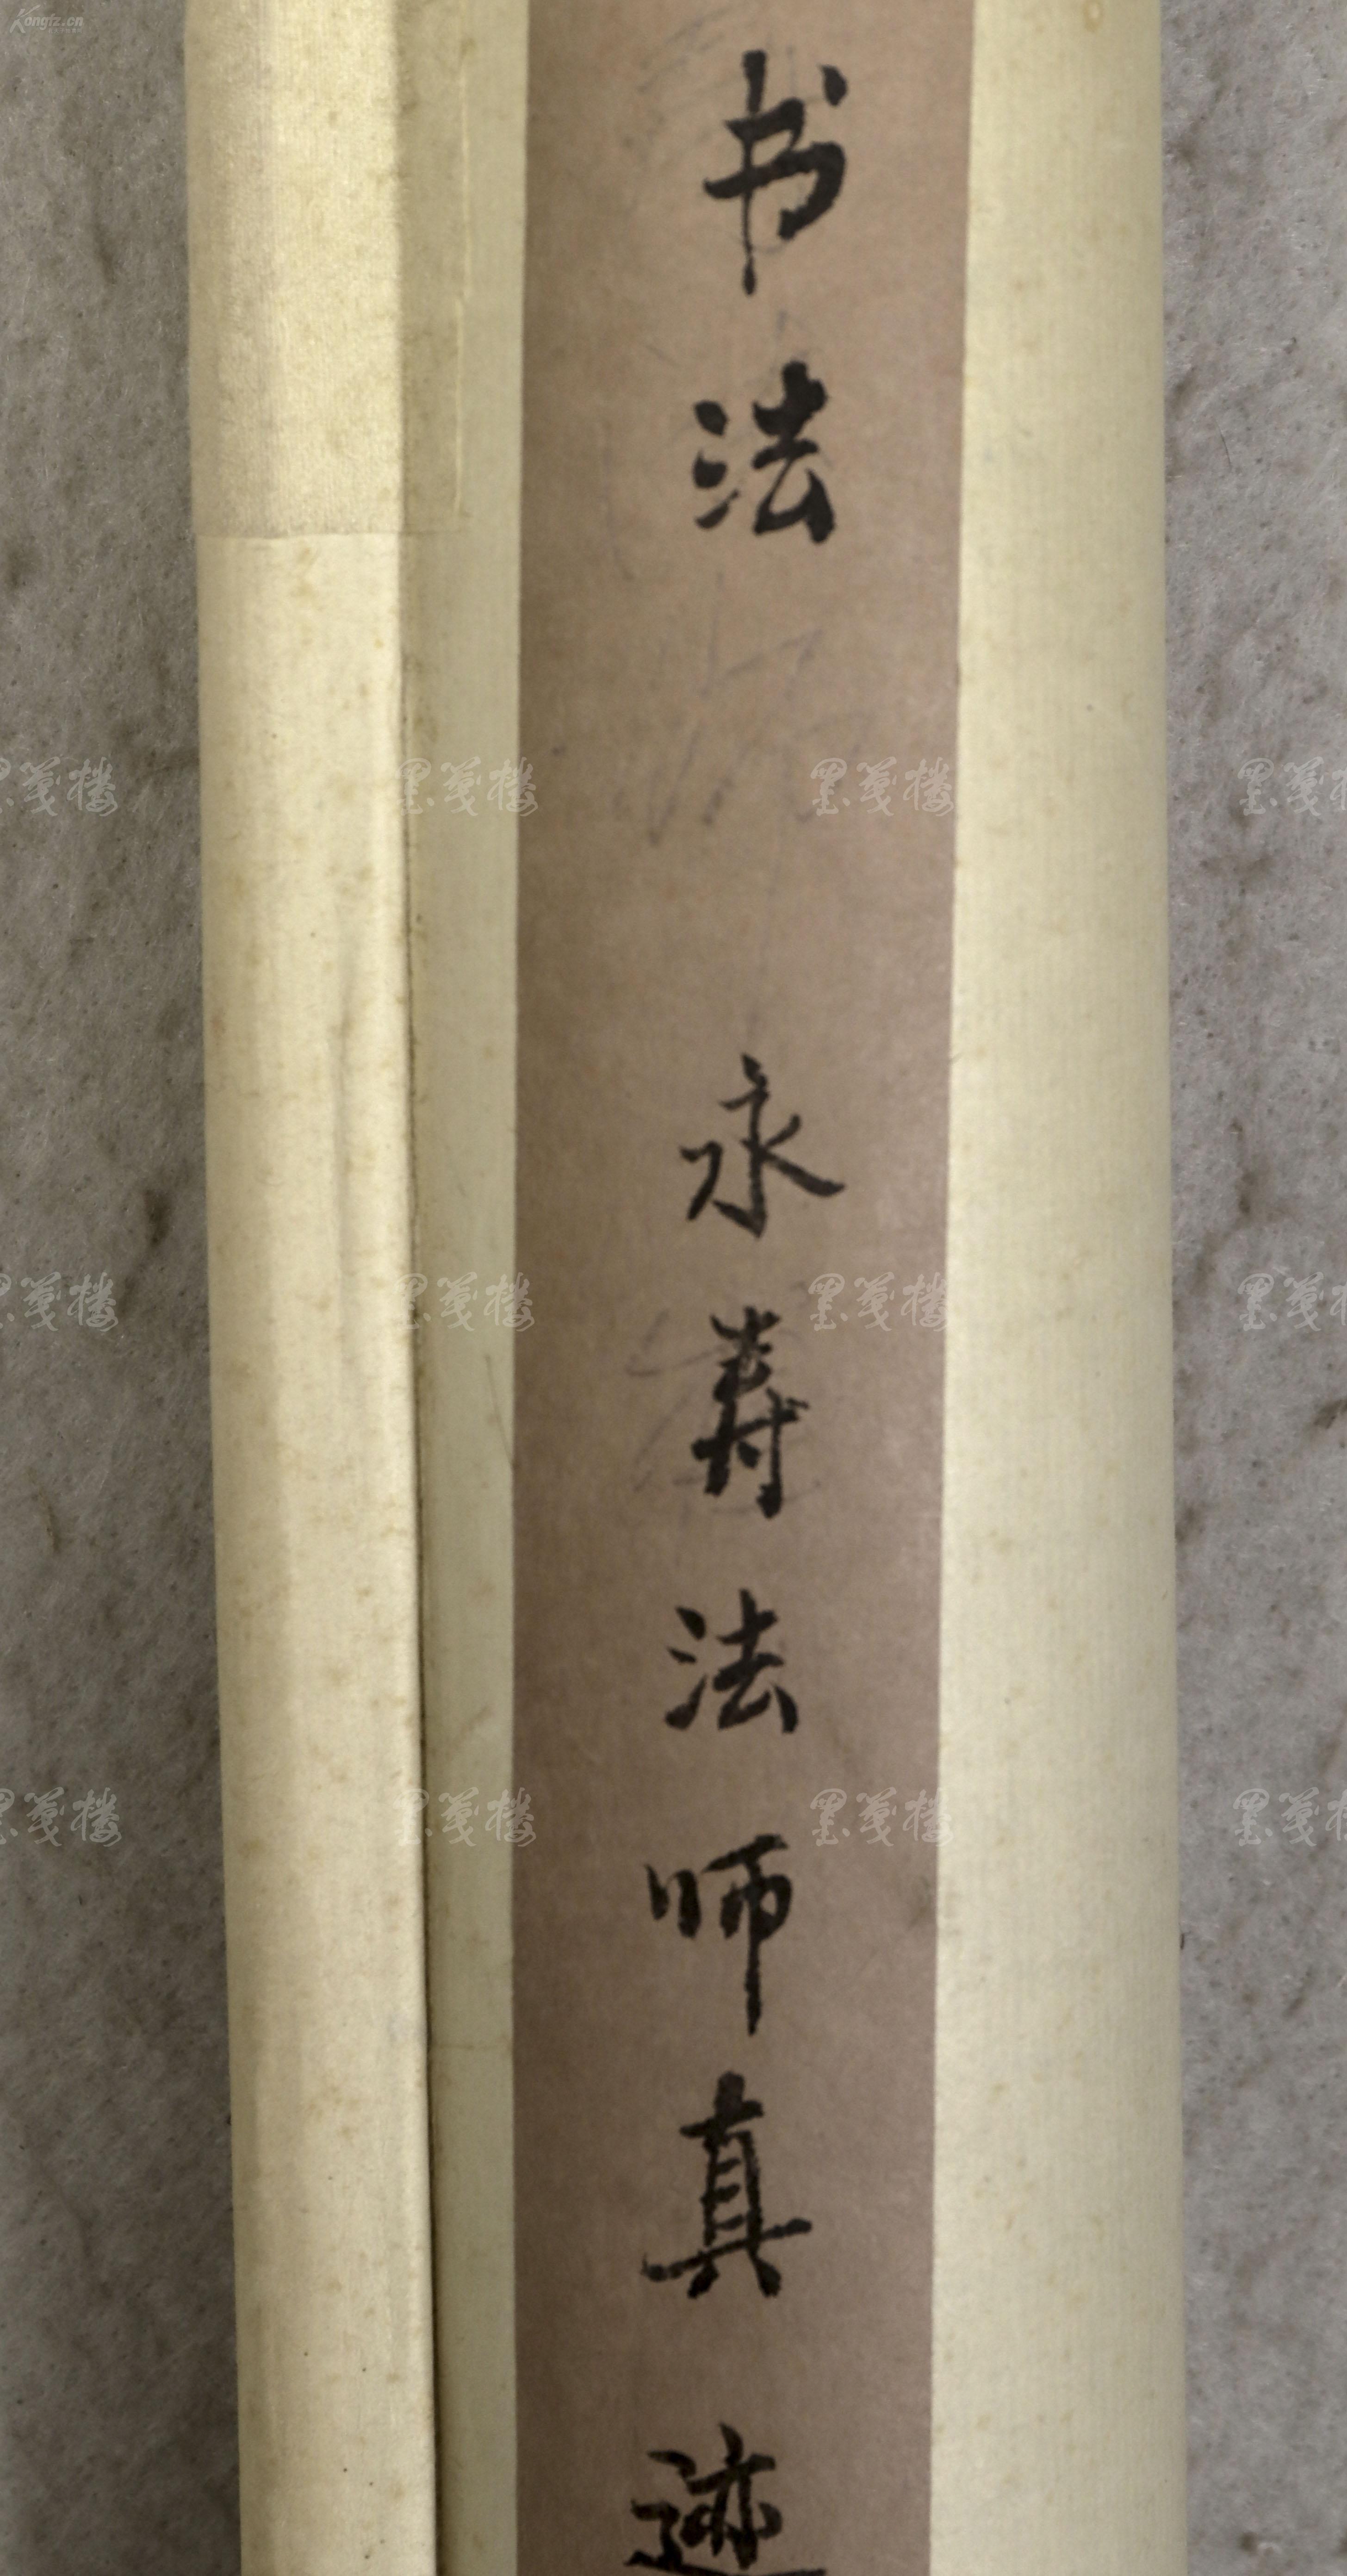 Kongfz.cn
书法
永寿法师真迹
墨笺楼
墨笺楼
墨笺楼
墨笺楼
墨笺楼
墨笺楼
墨笺楼
墨笺楼
墨笺楼
墨笺楼
墨笺楼
墨笺楼